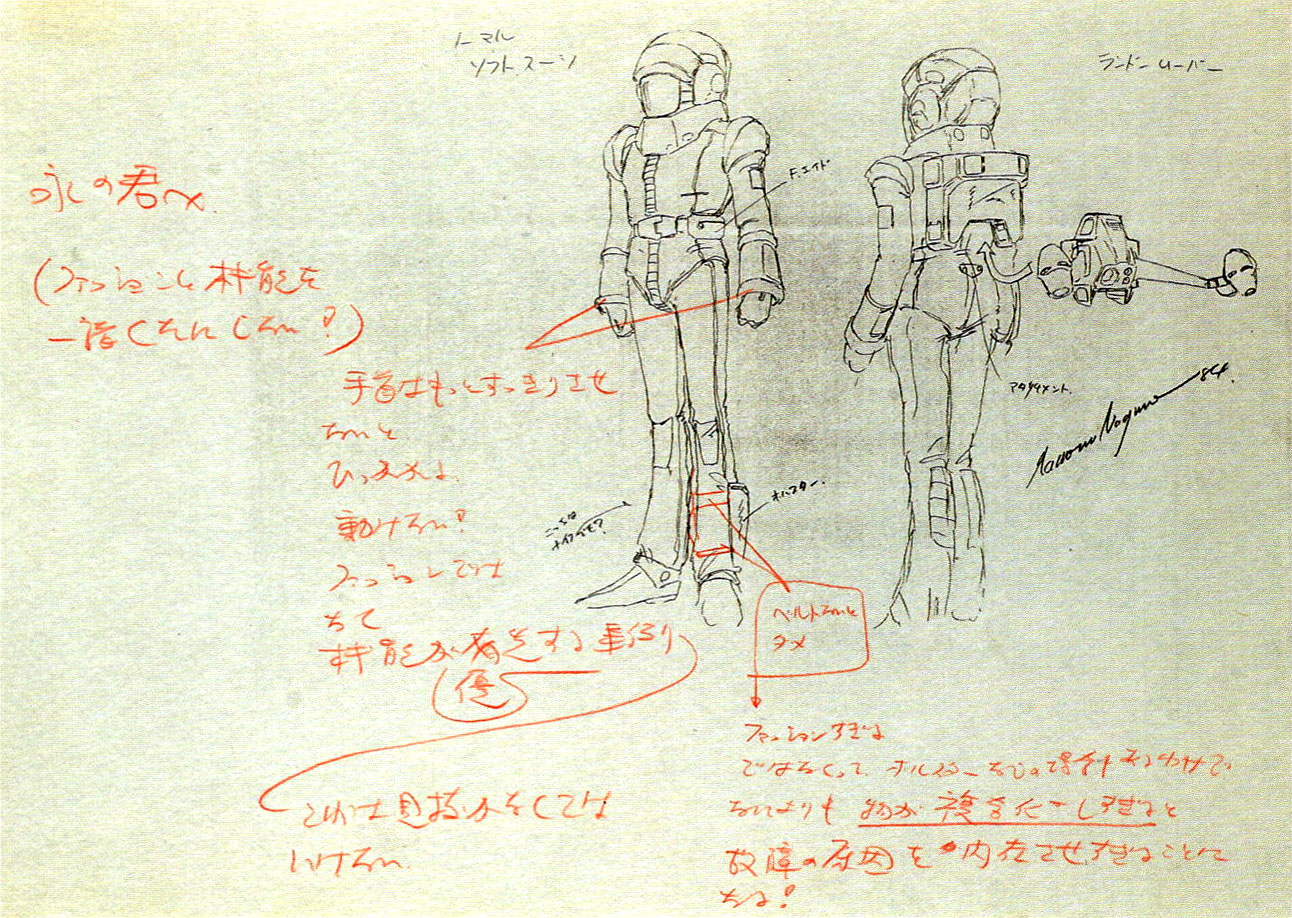 ノーマル
ソフトスーツ
ランドムーバー
永の君へ
(ファッションと機能を
一諸くたにしない?)
F.エイド
手首はもっとすっきりさせ
ないと
ひっかかるよ
動けない?
ファッションでは
なくて
機能が優先する
優
アタッチメント
Mamoru Nagano 84.
ホルスター
こっちは
ナイフでも?
ベルトないと
ダメ
これは忘れなくては
いけない
ファッションすぎる
ではなくって、ホルスターなどの
なによりも 物が複合化しすぎると
故障の原因を内在させすぎることに
なる!